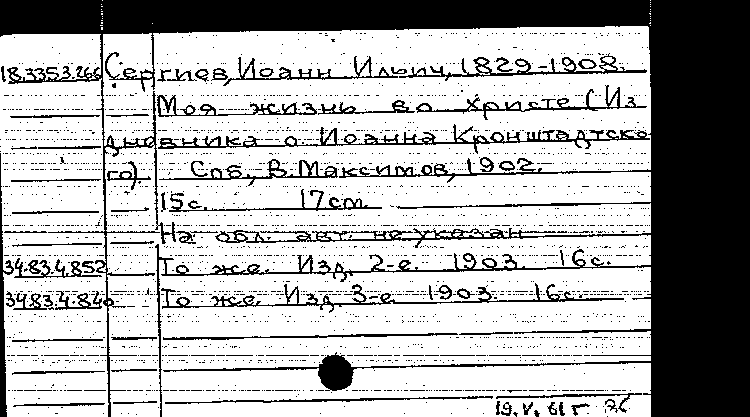 18.335.3.266 Сергиев, Иоанн Ильич, 1829-1908.
Моя жизнь во Христе (Из
дневника о. Иоанна Кронштадтско
го). Спб., В. Максимов, 1902.
15 с. 17 cm.
На обл. авт. не указан
34.83.4.852 То же. Изд. 2-е. 1903. 16 с.
34.83.4.840 То же. Изд. 3-е. 1903. 16 с.
19.V.61 г